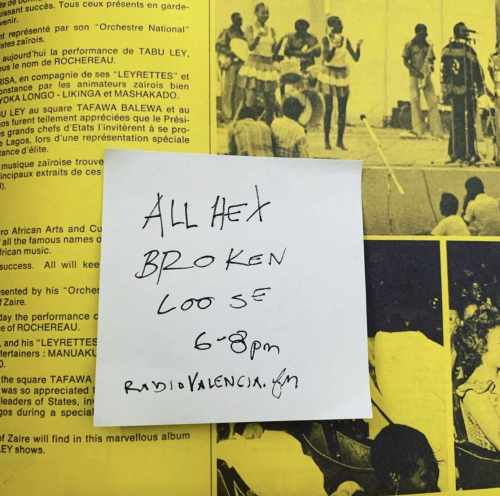 de bonn
uissant succès. Tous ceux présents en garde-
venir.
nt représenté par son "Orchestre National"
ates zaïrois.
aujourd'hui la performance de TABU LEY,
ous le nom de ROCHEREAU.
RISA, en compagnie de ses "LEYRETTES" et
constance par les animateurs zaïrois bien
YOKA LONGO - LIKINGA et MASHAKADO.
BU LEY au square TAFAWA BALEWA et au
gos furent tellement appréciées que le Prési-
es grands chefs d'Etats l'invitèrent à se pro-
e Lagos, lors d'une représentation spéciale
tance d'élite.
musique zaïroise trouve
incipaux extraits de ces
).
ro African Arts and Cu
f all the famous names o
frican music.
success. All will kee
esented by his "Orche
f Zaire.
day the performance o
e of ROCHEREAU.
, and his "LEYRETTES
tertainers : MANUAKU
O.
the square TAFAWA
was so appreciated t
leaders of States, inv
gos during a special
of Zaire will find in this marvellous album
EY shows.
ALL HEX
BROKEN
LOOSE
6-8pm
RADIOVALENCIA.fm